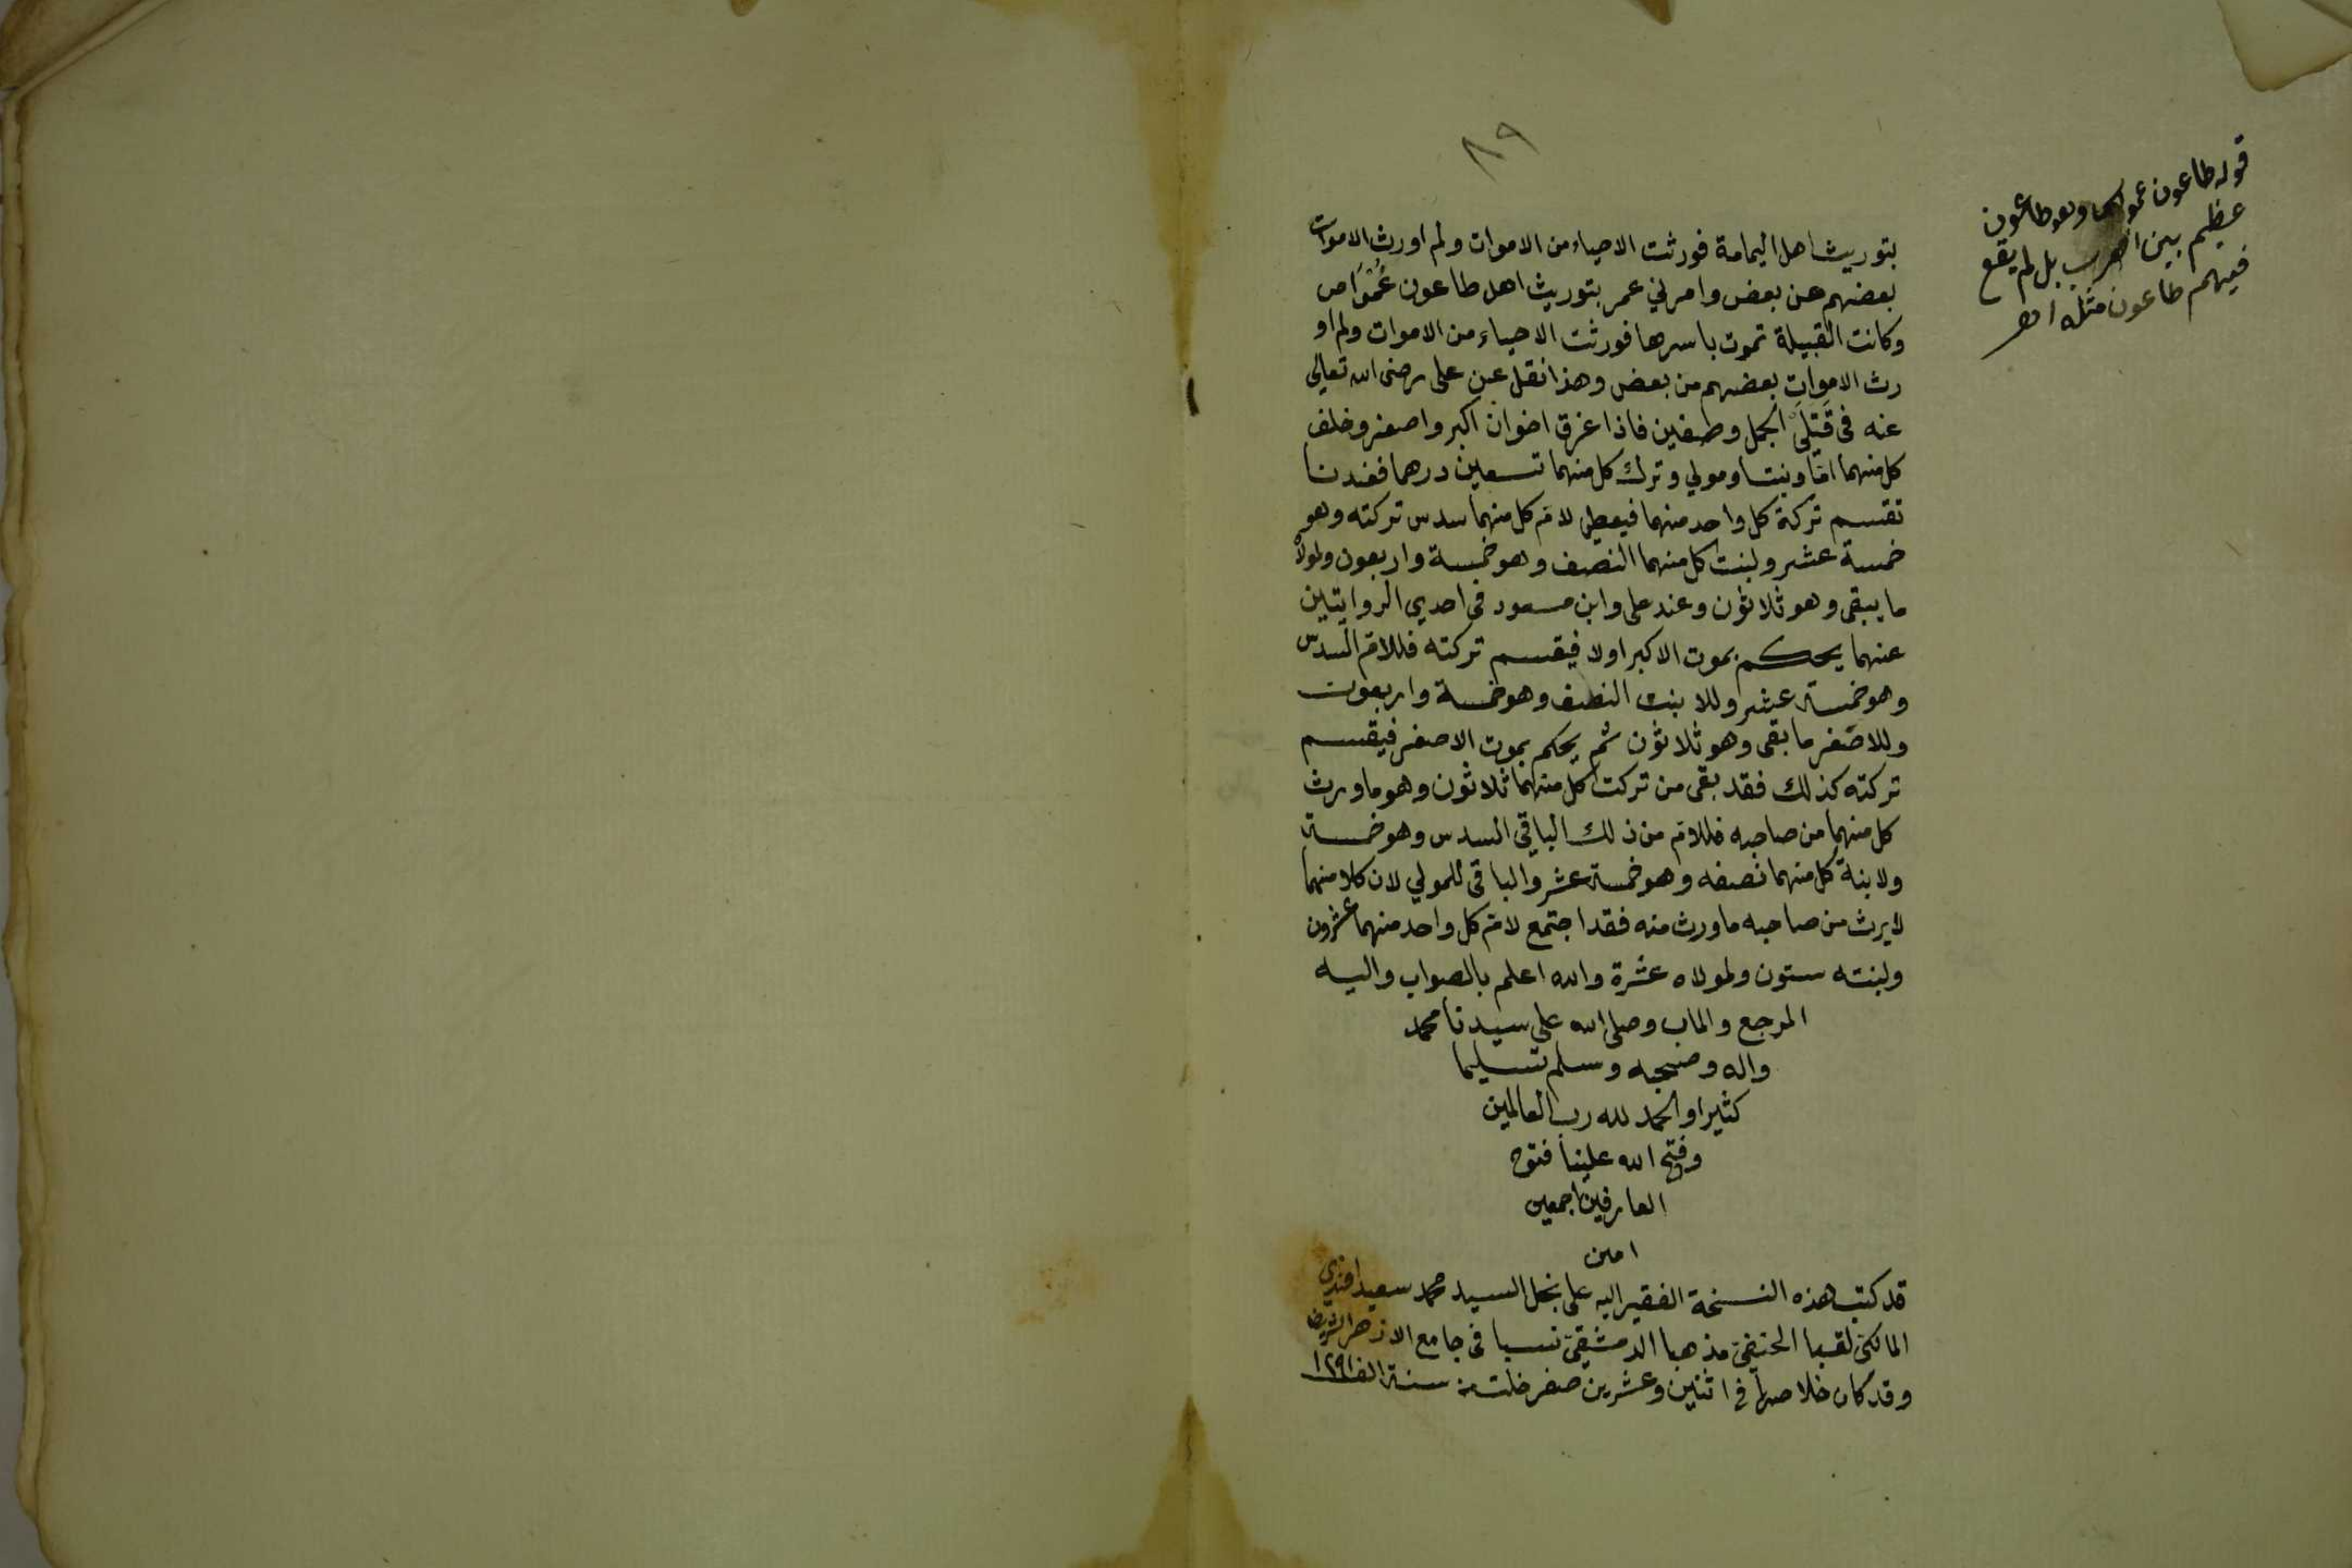 ٨٩
بتوريث اهل اليمامة فورثت الاحياء من الاموات ولم اورث الاموات
بعضهم من بعض وامرني عمر بتوريث اهل طاعون عَمْوَاص
وكانت القبيلة تموت باسرها فورثت الاحياء من الاموات ولم او
رث الاموات بعضهم من بعض وهذا نقل عن على رضى الله تعالي
عنه فى قَتْلَىْ الجمل وصفين فاذا غرق اخوان اكبر واصغر وخلف
كل منهما امّا وبنتا ومولي وترك كل منهما تسعين درهما فعندنا
تقسم تركة كل واحد منهما فيعطي لام كل منهما سدس تركته وهو
خمسة عشر ولبنت كل منهما النصف وهو خمسة واربعون ولمولاه
ما يبقى وهو ثلاثون وعند على وابن مسعود فى احدي الروايتين
عنهما يحكم بموت الاكبر اولا فيقسم تركته فللام السدس
وهو خمسة عشر وللابنت النصف وهو خمسة واربعون
وللاصغر ما بقى وهو ثلاثون ثم يحكم بموت الاصغر فيقسم
تركته كذلك فقد بقى من تركت كل منهما ثلاثون وهو ما ورث
كل منهما من صاحبه فللام من ذلك الباقي السدس وهو خمسة
ولابنة كل منهما نصفه وهو خمسة عشر والباقى للمولي لان كلا منهما
لا يرث من صاحبه ما ورث منه فقد اجتمع لام كل واحد منهما عشرون
ولبنته ستون ولمولاه عشرة والله اعلم بالصواب واليه
المرجع والماب وصلى الله على سيدنا محمد
واله وصحبه وسلم تسليما
كثيرا والحمد لله رب العالمين
وفتح الله علينا فتوح
العارفين اجمعين
امين
قد كتب هذه النسخة الفقير اليه على نجل السيد محمد سعيد افندي
المالكى لقبا الحنفى مذهبا الدمشقى نسبا فى جامع الازهر الشريف
وقد كان خلاصها في اثنين وعشرين صفر خلت من سنة الف ١٢٩١
قوله طاعون عمواس وهو طاعون
عظيم بين العرب بل لم يقع
فيهم طاعون مثله اهـ